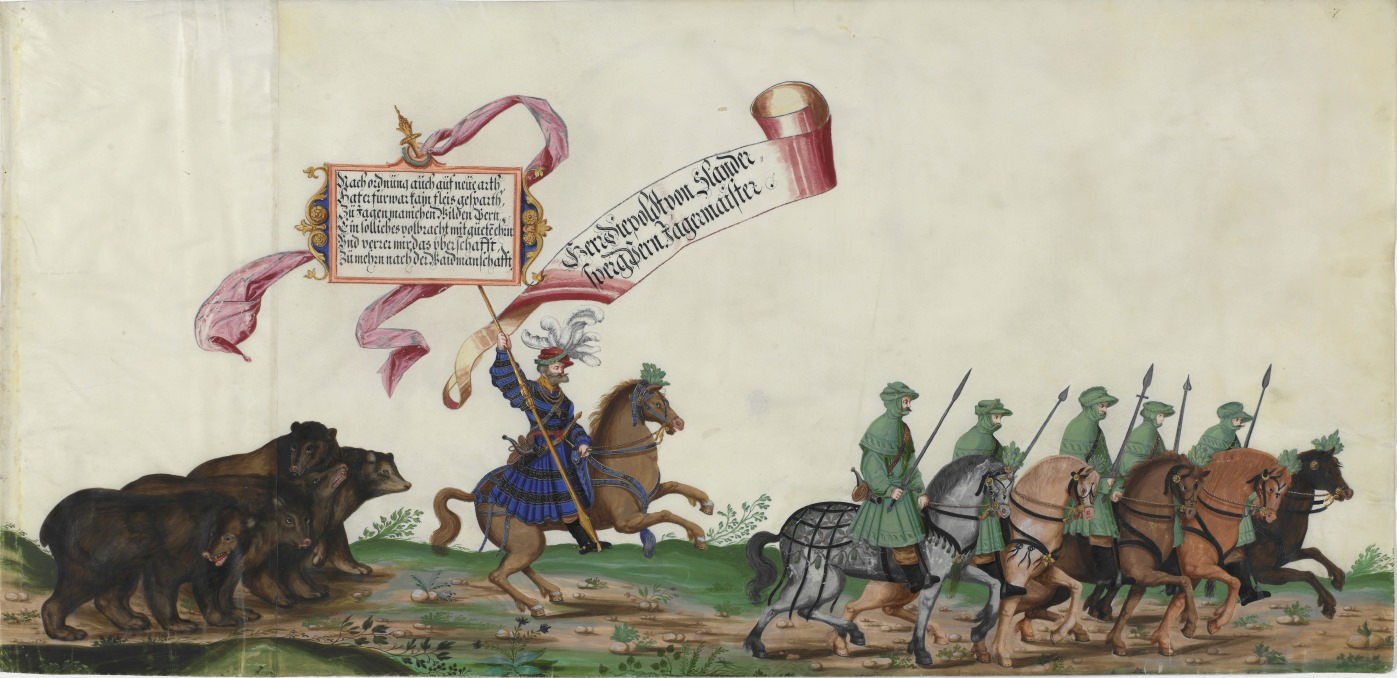 Nach ordnung auch auf neue arth
Hat er fürwar kain fleis gesparth
Zu Jagen manichen Wilden Bern
Ein solliches volbracht mit guetē ehrn
Vnd verrer mir das vberschafft
Zu mehrn nach der Waidmanschafft
Herr Diepolst von Slander,
sperg Pern Jägermaister